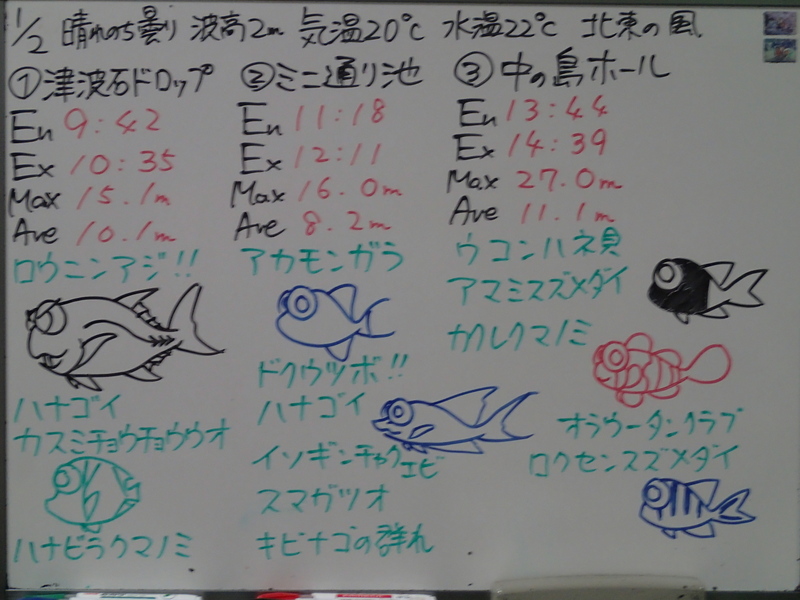 1/2 晴れのち曇り 波高2m 気温20℃ 水温22℃ 北東の風
①津波石ドロップ
En 9:42
Ex 10:35
Max 15.1m
Ave 10.1m
ロウニンアジ!!
ハナゴイ
カスミチョウチョウウオ
ハナビラクマノミ
②ミニ通り池
En 11:18
Ex 12:11
Max 16.0m
Ave 8.2m
アカモンガラ
ドクウツボ!!
ハナゴイ
イソギンチャクエビ
スマガツオ
キビナゴの群れ
③中の島ホール
En 13:44
Ex 14:39
Max 27.0m
Ave 11.1m
ウコンハネ貝
アマミスズメダイ
カクレクマノミ
オラウータンクラブ
ロクセンスズメダイ